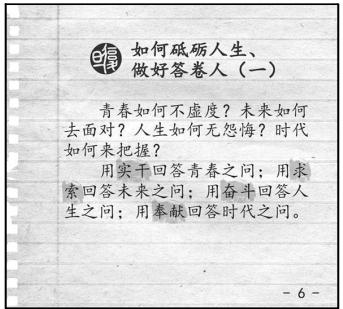 如何砥砺人生、
做好答卷人（一）
青春如何不虚度？未来如何
去面对？人生如何无怨悔？时代
如何来把握？
用实干回答青春之问；用求
索回答未来之问；用奋斗回答人
生之问；用奉献回答时代之问。
- 6 -